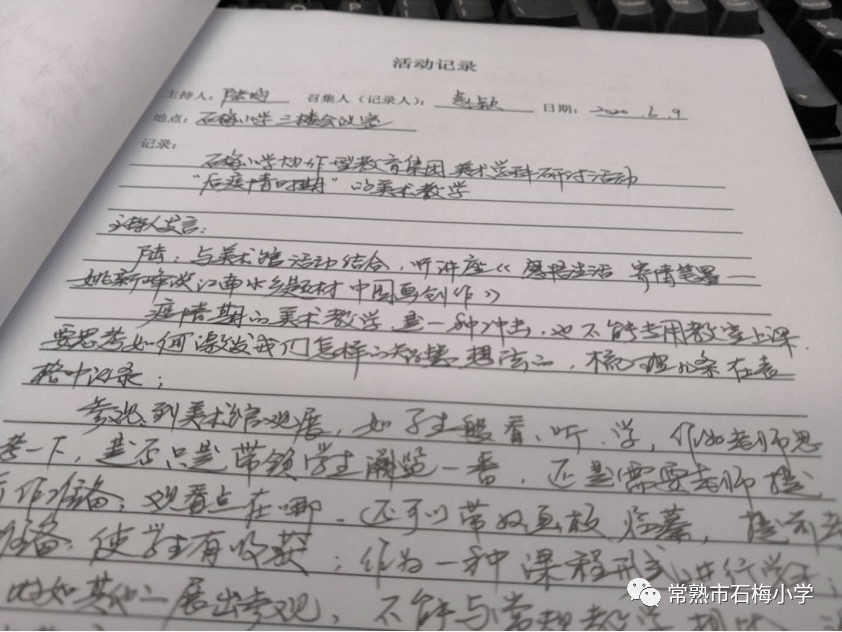 活动记录
主持人：陆昀 召集人（记录人）：赵颖 日期：2020.6.9
地点：石梅小学三楼会议室
记录：
石梅小学协作型教育集团美术学科研讨活动
“后疫情时期”的美术教学
主持人发言：
陆：与美术馆活动结合，听讲座《感悟生活 寄情笔墨—
姚新峰谈江南水乡题材中国画创作》
疫情期的美术教学，是一种冲击，也不能专用教室上课，
要思考如何激发我们怎样的智慧，想法的，梳理几条在表
格中记录；
参观，到美术馆观展，如学生般看、听、学，作为老师思
考一下，是否只是带领学生阅览一番，还是需要老师提
前作准备，观看点在哪，还可以带好画板临摹，提前去
准备，使学生有收获；作为一种课程形式进行学习；
比如其他一展出参观，不能与常规教学
常熟市石梅小学